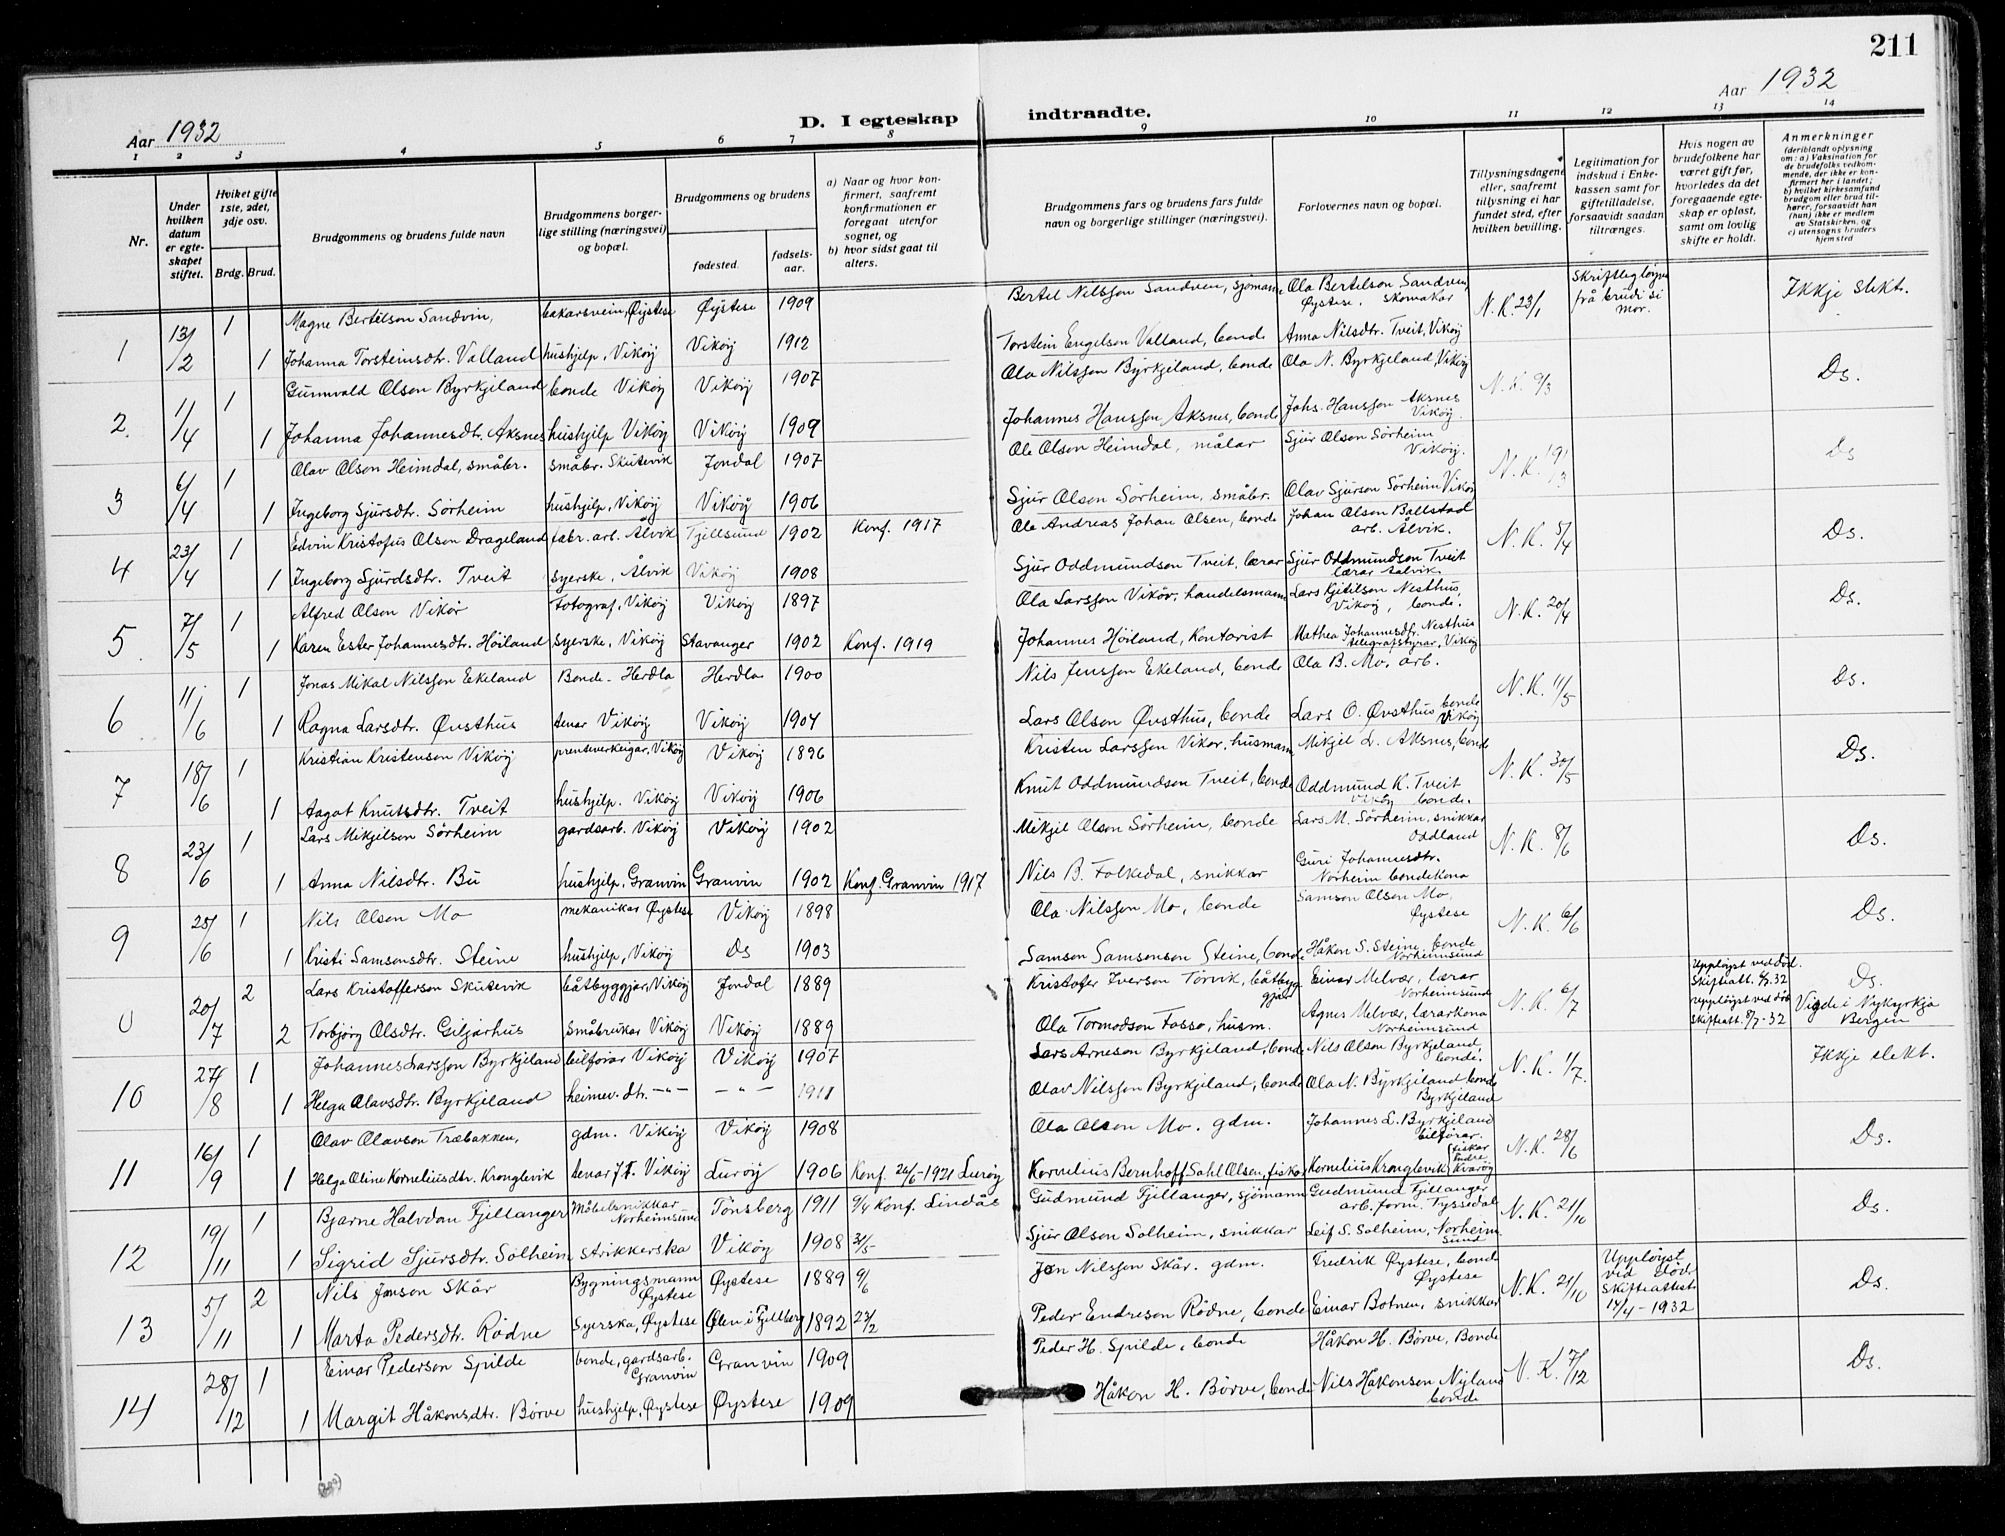 211
Aar 1932
Aar 1932
D. I egteskap indtraadte.
1 2 3 4 5 6 7 8 9 10 11 12 13 14
Nr.
Under hvilken datum er egteskapet stiftet.
Hviket gifte 1ste, 2det, 3dje osv.
Brdg. Brud.
Brudgommens og brudens fulde navn
Brudgommens borgerlige stilling (næringsvei) og bopæl.
Brudgommens og brudens
fødested.
fødselsaar.
a) Naar og hvor konfirmert, saafremt konfirmationen er foregaat utenfor sognet, og
b) hvor sidst gaat til alters.
Brudgommens fars og brudens fars fulde navn og borgerlige stillinger (næringsvei).
Forlovernes navn og bopæl.
Tillysningsdagene eller, saafremt tillysning ei har fundet sted, efter hvilken bevilling.
Legitimation for indskud i Enkekassen samt for giftetilladelse, forsaavidt saadan tiltrænges.
Hvis nogen av brudefolkene har været gift før, hvorledes da det foregaaende egteskap er opløst, samt om lovlig skifte er holdt.
Anmerkninger (deriblandt oplysning om: a) Vaksination for de brudefolks vedkommende, der ikke er konfirmert her i landet; b) hvilket kirkesamfund brudgom eller brud tilhører, forsaavidt han (hun) ikke er medlem av Statskirken, og c) utensogns bruders hjemsted
1 13/2 1 Magne Bertelson Sandvin, bakarsvein, Øystese Øystese 1909 Bertel Nilsson Sandven, sjømann Ola Bertelson Sandven, Øystese, skomakar N.K. 23/1 Skriftleg løyve frå brudi si mor. Ikkje slekt.
1 Johanna Torsteinsdtr. Valland hushjelp, Vikøy Vikøy 1912 Torstein Engelson Valland, bonde Anna Nilsdtr. Tveit, Vikøy
2. 1/4 1 Gunnvald Olson Byrkjeland bonde Vikøy Vikøy 1907 Ola Nilsson Byrkjeland, bonde Ola N. Byrkjeland, Vikøy N.K. 6/3 Ds.
1 Johanna Johannesdtr. Aksnes hushjelp Vikøy Vikøy 1909 Johannes Hansson Aksnes, bonde Johs. Hansson Aksnes Vikøy.
3 6/4 1 Olav Olson Heimdal, småbr. småbr. Skutevik Jondal 1907 Ole Olson Heimdal, målar Sjur Olson Sørheim Vikøy. N.K. 19/3 Ds
1 Ingeborg Sjursdtr. Sørheim hushjelp, Vikøy Vikøy 1906 Sjur Olson Sørheim, småbr. Olav Sjurson Sørheim Vikøy
4 23/4 1 Edvin Kristofus Olsen Drageland fabr. arb. Ålvik Tjellsund 1902 Konf. 1917 Ole Andreas Johan Olsen, bonde Johan Olson Ballstad arb. Ålvik. N.K. 5/4 Ds.
1 Ingeborg Sjurdsdtr. Tveit syerske, Ålvik Vikøy 1908 Sjur Oddmundson Tveit, lærar Sjur Oddmundson Tveit lærar Aalvik
5. 7/5 1 Alfred Olson Vikør Fotograf, Vikøy Vikøy 1897 Ola Larsson Vikør, handelsmann Lars Kjetilson Nesthus, Vikøy, bonde. N.K. 20/4 Ds.
1 Karen Ester Johannesdtr. Höiland syerske, Vikøy Stavanger 1902 Konf. 1919 Johannes Höiland, Kontorist Methea Johannesdtr. Nesthus telegrafstyrar, Vikøy
6 11/6 1 Jonas Mikal Nilsson Ekeland Bonde - Herdla Herdla 1900 Nils Jensson Ekeland, bonde Ola B. Mo, arb. N.K. 11/5 Ds.
1 Ragna Larsdtr. Øvsthus tenar Vikøy Vikøy 1904 Lars Olson Øvsthus, bonde Lars O. Øvsthus bonde Vikøy
7 18/6 1 Kristian Kristenson Vikøy prenteverkeigar, Vikøy Vikøy 1896 Kristen Larsson Vikør, husmann Mikjel L. Aksnes, bonde N.K. 30/5 Ds.
1 Aagot Knutsdtr. Tveit hushjelp. Vikøy Vikøy 1906 Knut Oddmundson Tveit, bonde Oddmund K. Tveit Vikøy bonde.
8 23/6 1 Lars Mikjelson Sørheim gardsarb. Vikøy Vikøy 1902 Mikjel Olson Sørheim, bonde Lars M. Sørheim, snikkar Oddland N.K. 8/6 Ds.
1 Anna Nilsdtr. Bu hushjelp, Granvin Granvin 1902 Konf. Granvin 1917 Nils B. Folkedal, snikkar Guri Johannesdtr. Norheim bondekona
9 25/6 1 Nils Olson Mo mekanikar Øystese Vikøy 1898 Ola Nilsson Mo, bonde Samson Olson Mo, Øystese N.K. 6/6 Ds.
1 Kristi Samsonsdtr. Steine hushjelp, Vikøy Ds 1903 Samson Samsonson Steine, bonde Håkon S. Steine, bonde Norheimsund
0 20/7 2 Lars Kristofferson Skutevik båtbyggjar, Vikøy Jondal 1889 Kristofer Iverson Torvik, båtbyggjar Einar Melvær, lærar Norheimsund N.K. 6/7 Uppløyst ved død. Skifteatt. 6/7.32 Ds.
2 Torbjørg Olsdtr. Giljarhus Småbrukar Vikøy Vikøy 1889 Ola Tormodson Fosso, husm. Agnes Melvær, lærarkona Norheimsund Uppløyst ved død Skifteatt. 8/7-32 Vigde i Nykyrkja Bergen
10 27/8 1 Johannes Larsson Byrkjeland bilførar Vikøy Vikøy 1907 Lars Arneson Byrkjeland, bonde Nils Olson Byrkjeland bonde. N.K. 1/7. Ikkje slekt.
1 Helga Olavsdtr. Byrkjeland heimev. dtr. -"- -"- 1911 Olav Nilsson Byrkjeland, bonde Ola N. Byrkjeland bonde Byrkjeland
11 16/9 1 Olav Olavson Træbakken, gdm. Vikøy Vikøy 1908 Ola Olson Mo. gdm. Johannes L. Byrkjeland bilførar. N.K. 28/6 Ds.
1 Helga Oline Korneliusdtr. Kronglevik tenar J.T. Vikøy Lurøy 1906 Konf. 26/6-1921 Lurøy Kornelius Bernhoff Dahl Olsen, fiskar Kornelius Kronglevik fiskar Indre Kvarøy
12 19/11 1 Bjarne Halvdan Fjellanger Møbelsnikkar Norheimsund Tønsberg 1911 9/4 Konf. Lindås Gudmund Fjellanger, sjømann Gudmund Fjellanger arb. form. Tyssedal N.K. 21/10 Ds.
1 Sigrid Sjursdtr. Solheim strikkerska Vikøy 1908 31/5 Sjur Olson Solheim, snikkar Leif S. Solheim, Norheimsund
13 5/11 2 Nils Jonson Skår Bygningsmann Øystese Øystese 1889 9/6 Jon Nilsson Skår. gdm. Fredrik Øystese, bonde Øystese N.K. 21/10 Uppløyst ved død. Skifteattest 14/4-1932 Ds.
1 Marta Pedersdtr. Rødne Syerska, Øystese Ølen i Fjellberg 1892 23/2 Peder Endreson Rødne, bonde Einar Botnen, snikkar
14 28/12 1 Einar Pederson Spilde bonde, gardsarb. Granvin Granvin 1909 Peder H. Spilde, bonde Håkon H. Børve, Bonde N.K. 7/12 Ds.
1 Margit Håkonsdtr. Børve hushjelp, Øystese Øystese 1909 Håkon H. Børve, bonde Nils Håkonsen Nyland bonde